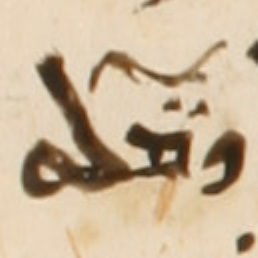 وقوله